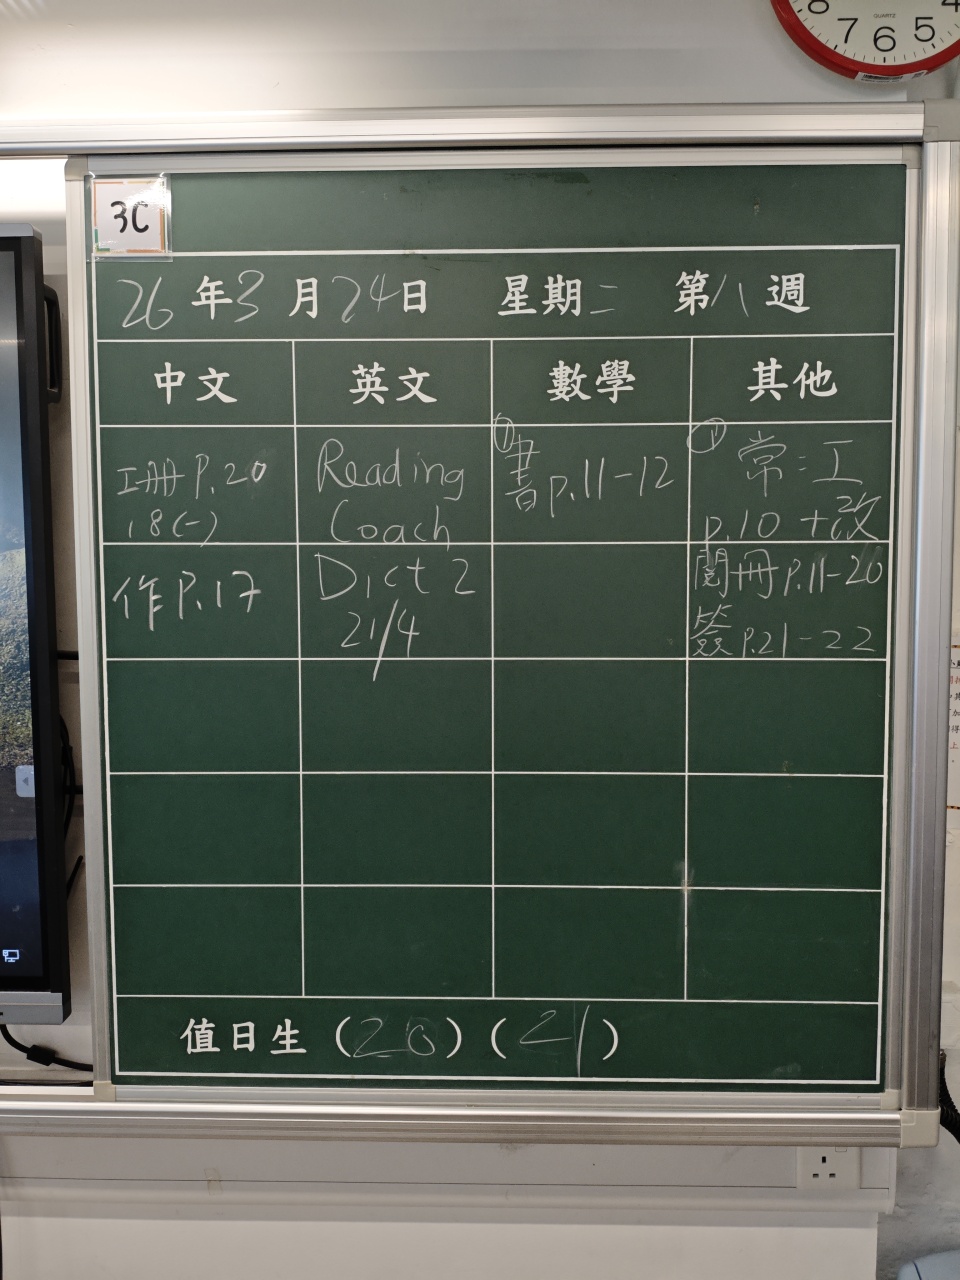 8 7 6 5 4
QUARTZ
3C
26年3月24日 星期二 第八週
中文 英文 數學 其他
工冊P.20
18(一)
Reading
Coach
①書p.11-12
① 常:工
p.10 +改
作P.17
Dict 2
21/4
閱冊P.11-20
簽P.21-22
值日生(20)(21)